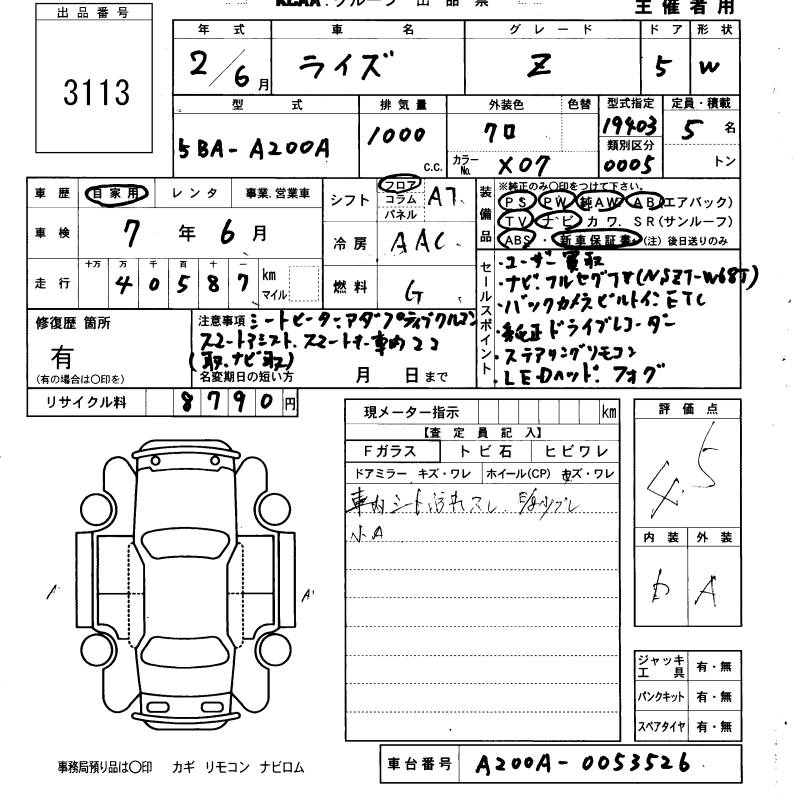 KCAA.グループ 出品票
主催者用
出品番号
3113
年式 車名 グレード ドア 形状
2/6月 ライズ Z 5 W
型式 排気量 外装色 色替 型式指定 定員・積載
5BA-A200A 1000 c.c. クロ 19403 5名
類別区分
カラーNo. X07 0005 トン
車歴 自家用 レンタ 事業.営業車
車検 7年6月
走行 十万 万 千 百 十 一
40587 km マイル
シフト フロア コラム パネル AT
冷房 AAC
燃料 G
装備品 ※純正のみ〇印をつけて下さい。
PS PW 純AW AB(エアバック)
TV ナビ カワ. SR(サンルーフ)
ABS・新車保証書(注)後日送りのみ
セールスポイント
・ユーザー買取
・ナビ.フルセグTV(NSZT-W68T)
・バックカメラビルトインETC
・純正ドライブレコーダー
・ステアリングリモコン
・LEDヘッド.フォグ
修復歴 箇所
有
(有の場合は〇印を)
注意事項 シートヒーター.アダプティブクルコン
スマートアシスト.スマートキー車内ココ
(取.ナビ取)
名変期日の短い方 月 日まで
リサイクル料 8790円
現メーター指示 km
【査定員記入】
Fガラス トビ石 ヒビワレ
ドアミラー キズ・ワレ ホイール(CP) キズ・ワレ
車内シート汚れスレ
小A
評価点
4.5
内装 外装
b A
A A
ジャッキ工具 有・無
パンクキット 有・無
スペアタイヤ 有・無
事務局預り品は〇印 カギ リモコン ナビロム
車台番号 A200A-0053526